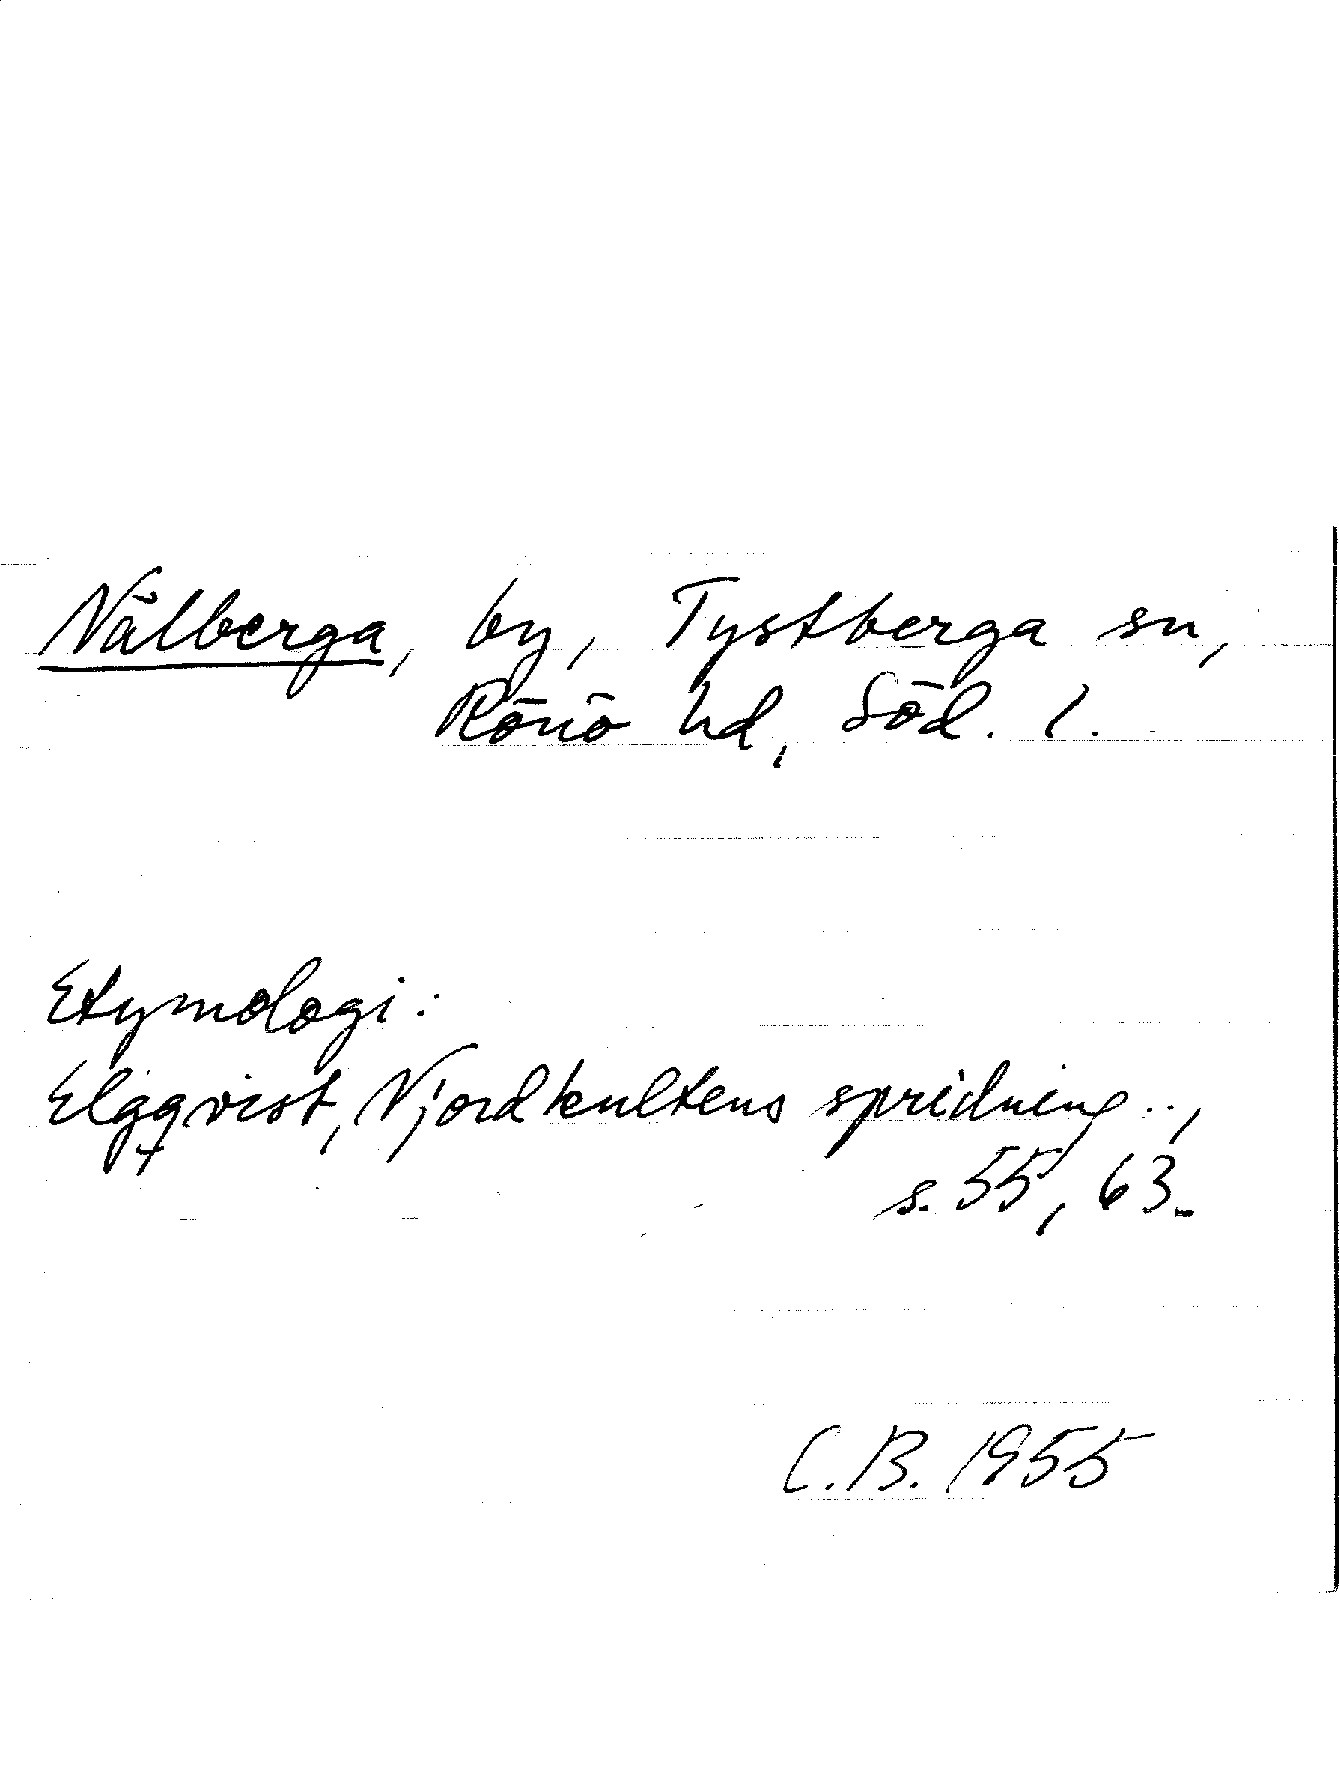 Nälberga, by, Tystberga sn,
Rönö hd, Söd. l.
Etymologi:
Elgqvist, Njordkultens spridning..,
s. 55, 63.
C.B. 1955